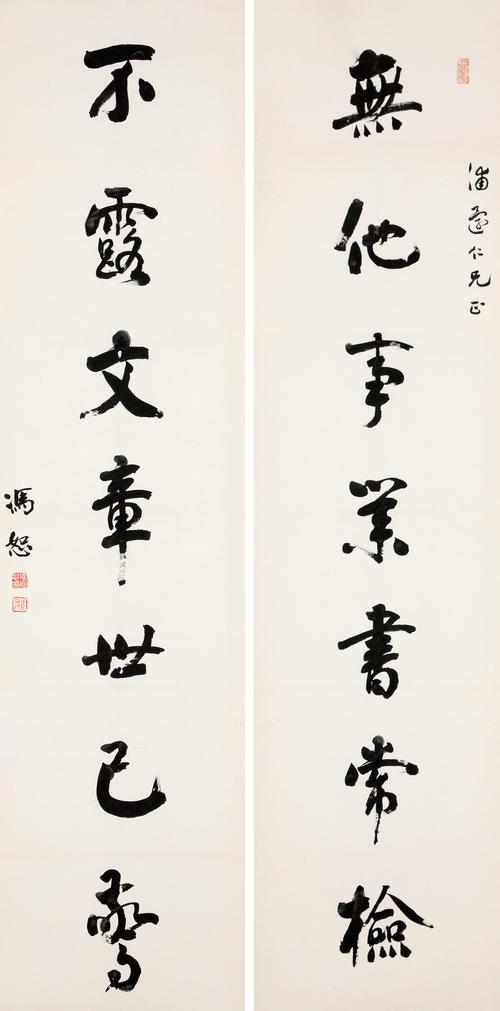 浦 仁兄正
無他事業書常檢
不露文章世已驚
馮恕